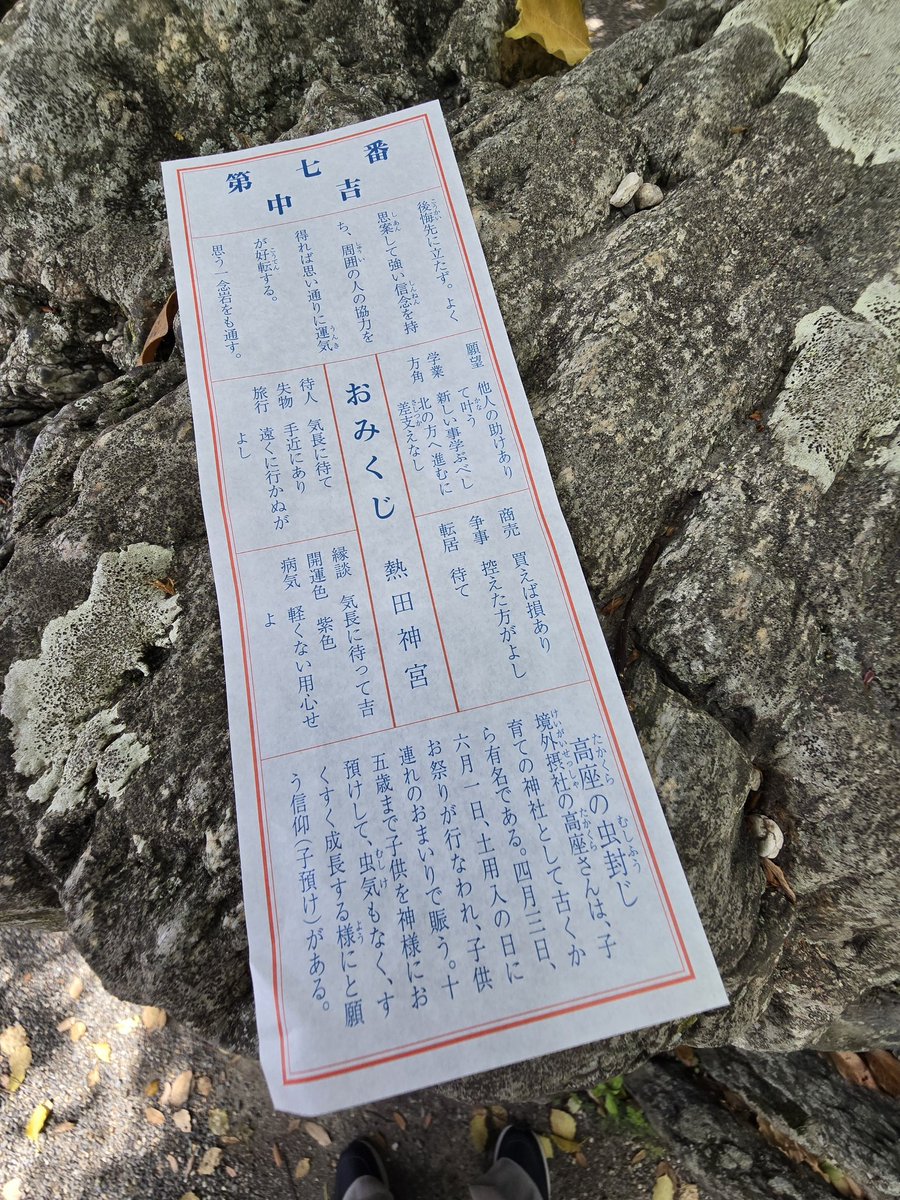 第七番
中吉
後悔先に立たず。よく
思案して強い信念を持
ち、周囲の人の協力を
得れば思い通りに運気
が好転する。
思う一念岩をも通す。
願望 他人の助けあり
て叶う
学業 新しい事学ぶべし
方角 北の方へ進むに
差支えなし
商売 買えば損あり
争事 控えた方がよし
転居 待て
おみくじ 熱田神宮
待人 気長に待て
失物 手近にあり
旅行 遠くに行かぬが
よし
縁談 気長に待って吉
開運色 紫色
病気 軽くない用心せ
よ
高座の虫封じ
境外摂社の高座さんは、子
育ての神社として古くか
ら有名である。四月三日、
六月一日、土用入の日に
お祭りが行なわれ、子供
連れのおまいりで賑う。十
五歳まで子供を神様にお
預けして、虫気もなく、す
くすく成長する様にと願
う信仰(子預け)がある。